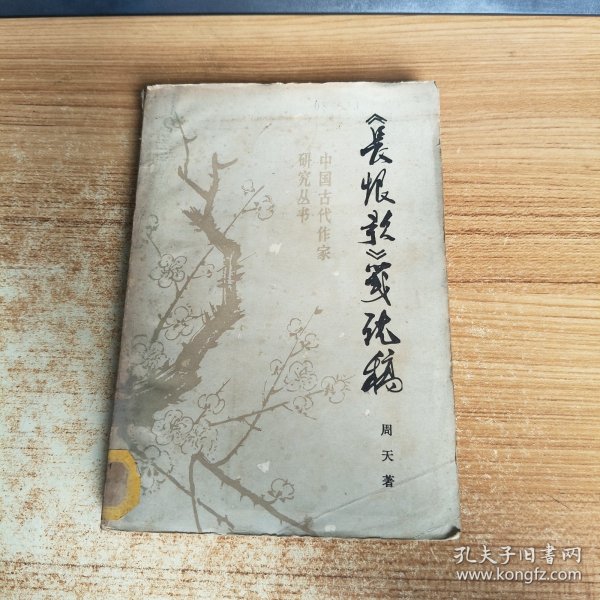 《長恨歌》箋说稿
周天著
中国古代作家
研究丛书
孔夫子旧书网
www.kongfz.com